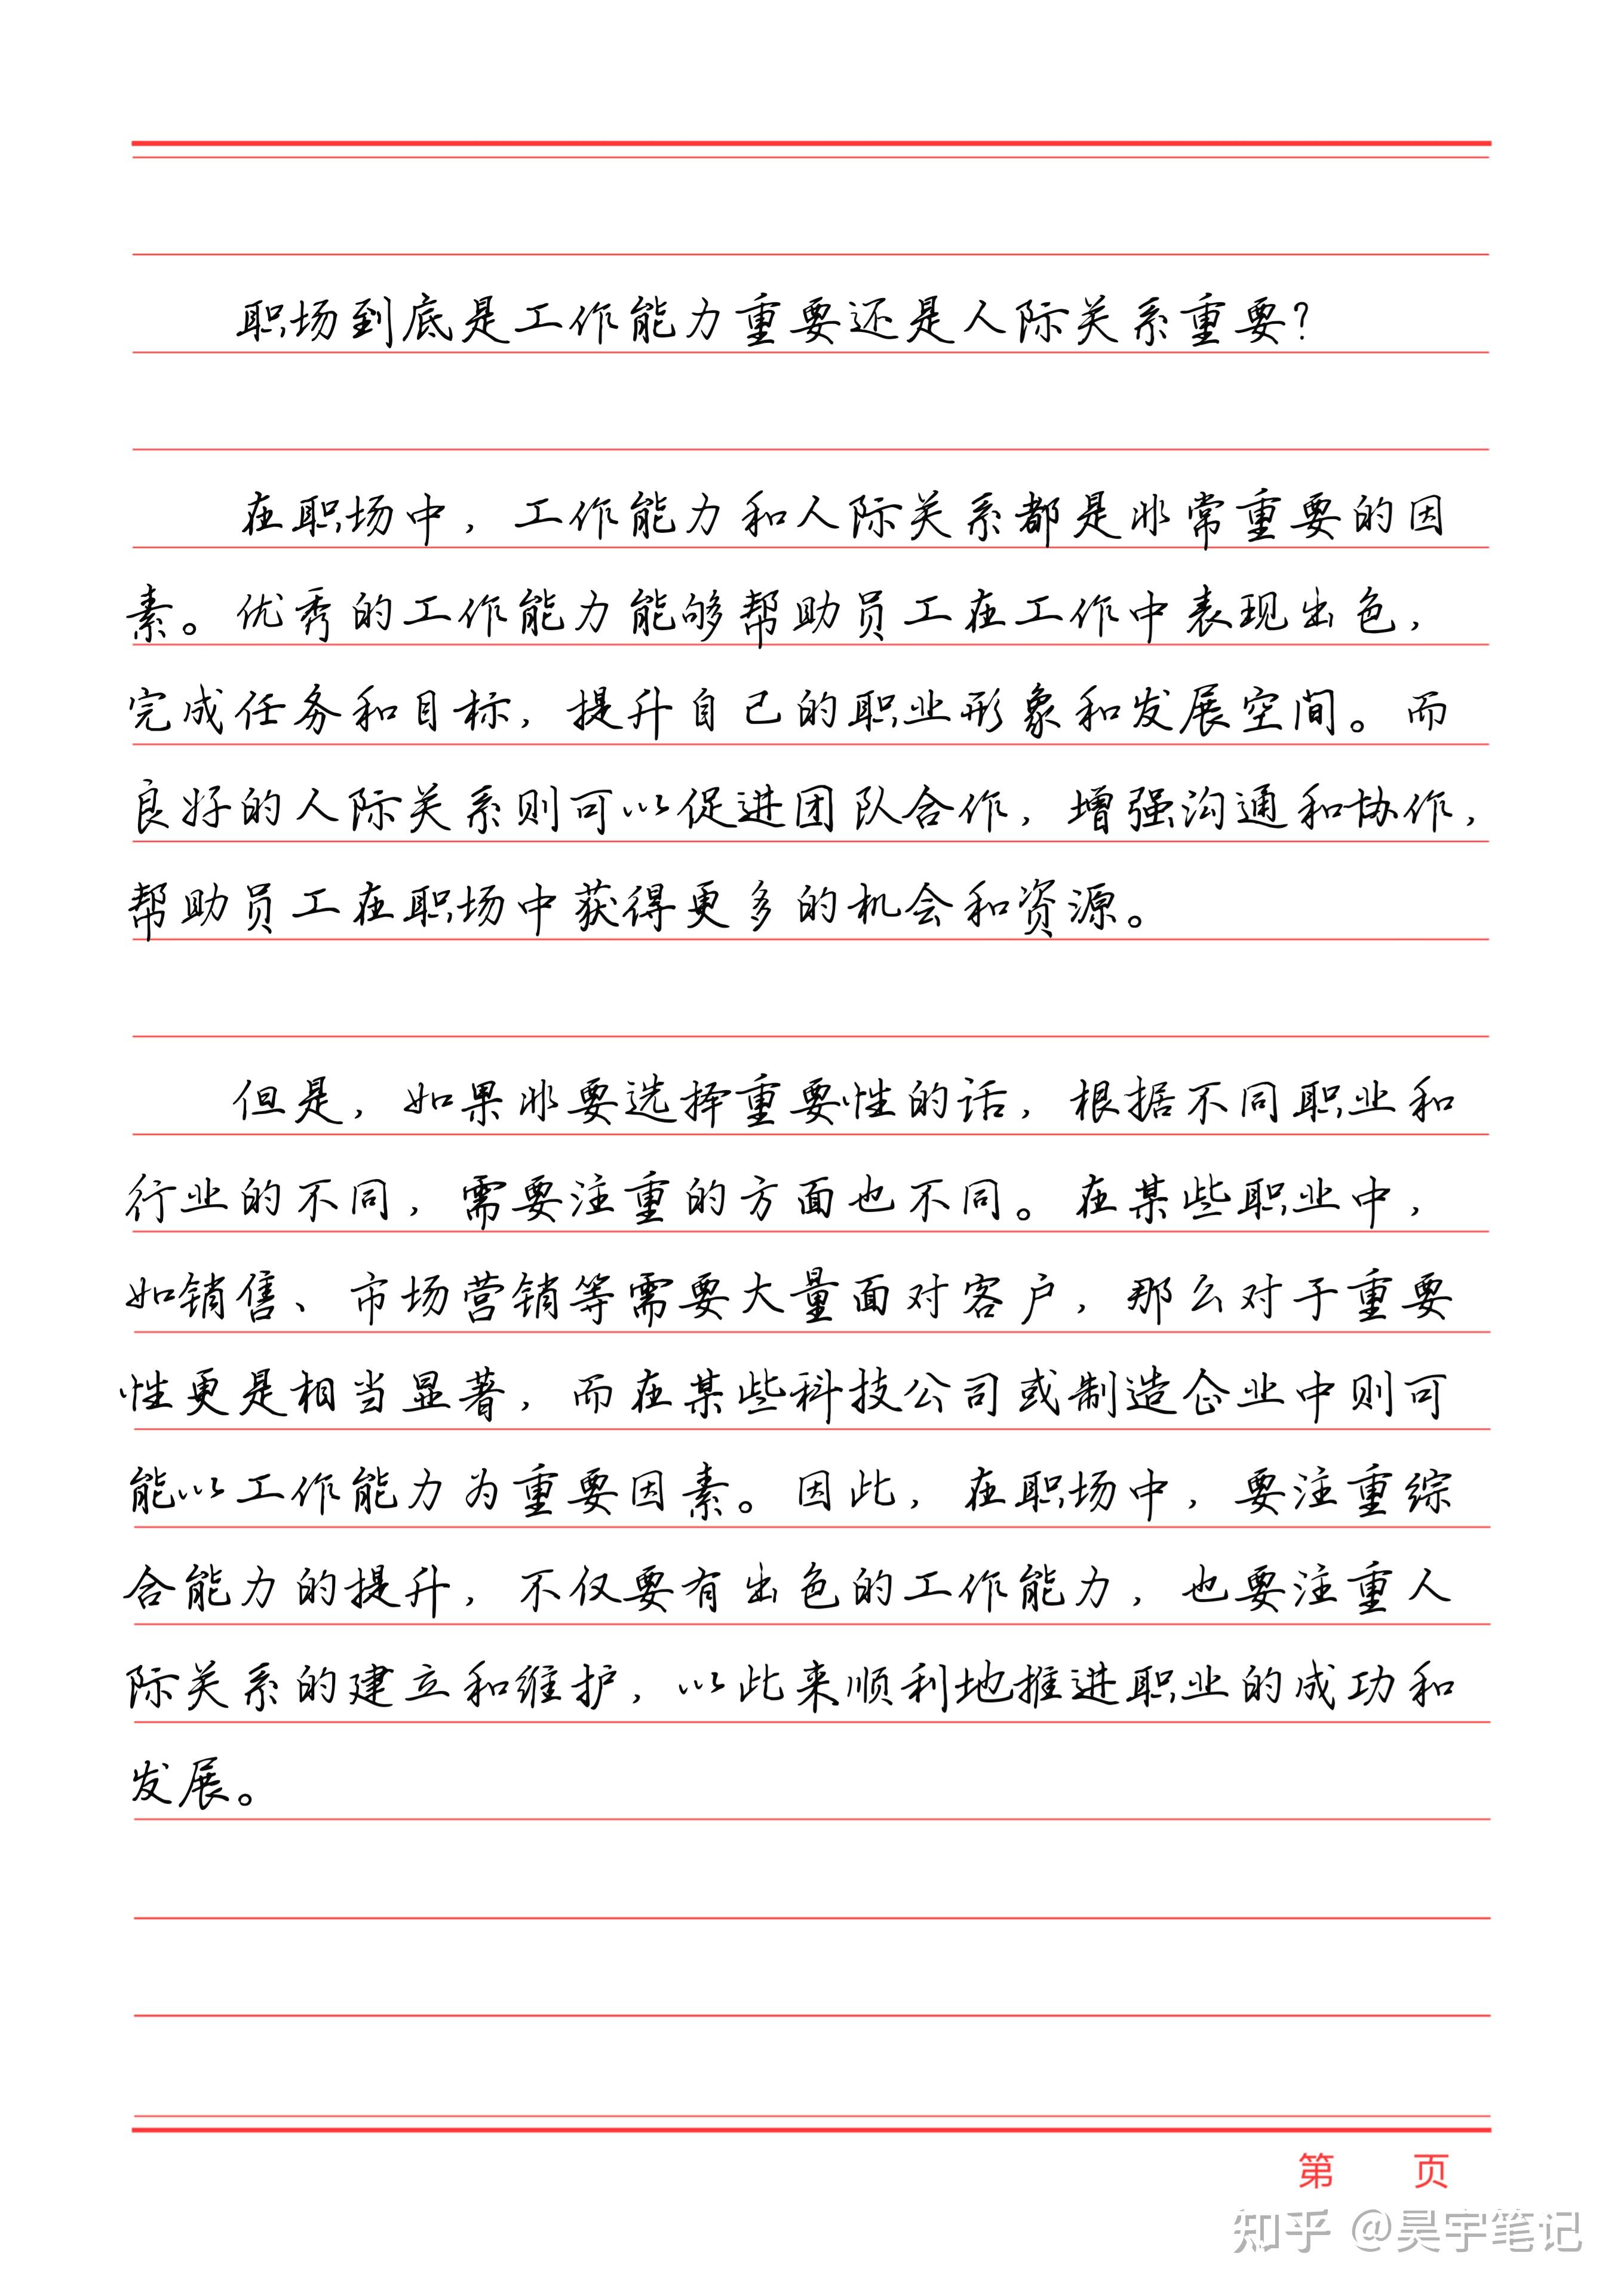 职场到底是工作能力重要还是人际关系重要？
在职场中，工作能力和人际关系都是非常重要的因
素。优秀的工作能力能够帮助员工在工作中表现出色，
完成任务和目标，提升自己的职业形象和发展空间。而
良好的人际关系则可以促进团队合作，增强沟通和协作，
帮助员工在职场中获得更多的机会和资源。
但是，如果非要选择重要性的话，根据不同职业和
行业的不同，需要注重的方面也不同。在某些职业中，
如销售、市场营销等需要大量面对客户，那么对于重要
性更是相当显著，而在某些科技公司或制造企业中则可
能以工作能力为重要因素。因此，在职场中，要注重综
合能力的提升，不仅要有出色的工作能力，也要注重人
际关系的建立和维护，以此来顺利地推进职业的成功和
发展。
第 页
知乎 @昊宇笔记